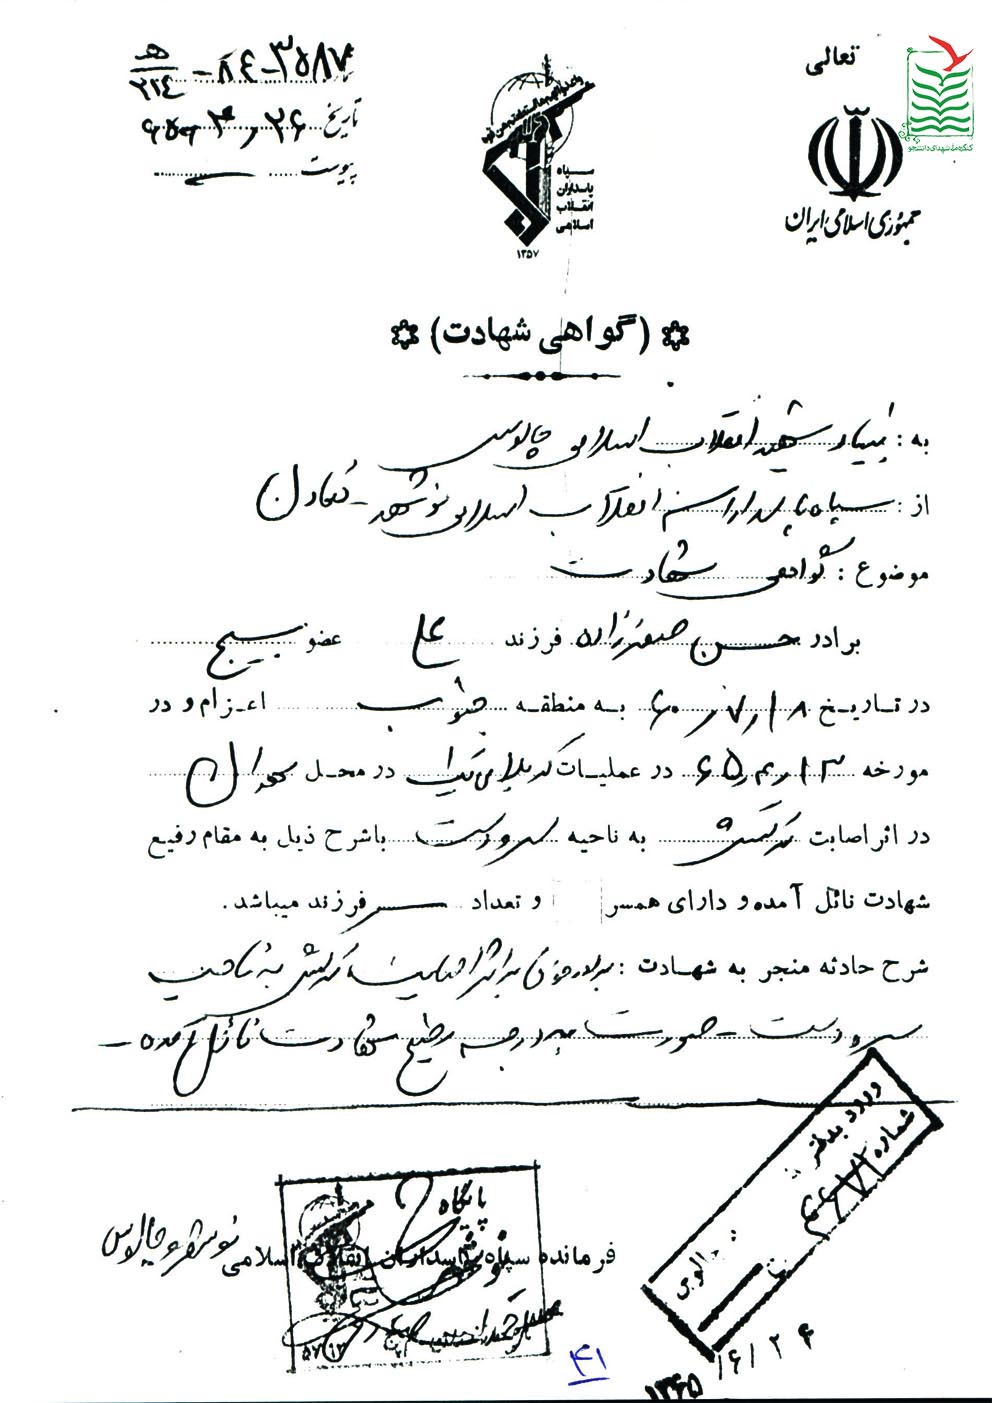 تعالی
کنگره ملی شهدای دانشجو
جمهوری اسلامی ایران
سپاه
پاسداران
انقلاب
اسلامی
۱۳۵۷
۳۵۸۷-۸۴-
ه
۲۱۴
تاریخ ۲۶
پیوست
(گواهی شهادت)
به : بنیاد شهید انقلاب اسلامی چالوس
از : سپاه پاسداران انقلاب اسلامی نوشهر - تعاون
موضوع : گواهی شهادت
برادر حسن صفرزاده فرزند علی عضو بسیج
در تاریخ ۶۰٫۷٫۱۸ به منطقه جنوب اعزام و در
مورخه ۶۵٫۴٫۱۳ در عملیات کربلای یک در محل
در اثر اصابت ترکش به ناحیه سر و دست باشرح ذیل به مقام رفیع
شهادت نائل آمده و دارای همسر و تعداد فرزند میباشد.
شرح حادثه منجر به شهادت : برادر فوق بر اثر اصابت ترکش به ناحیه
سر و دست - صورت به درجه رفیع شهادت نائل آمده -
ورود بدفتر
شماره
پایگاه
فرمانده سپاه پاسداران انقلاب اسلامی نوشهر و چالوس
۴۱
۱۳۶۵